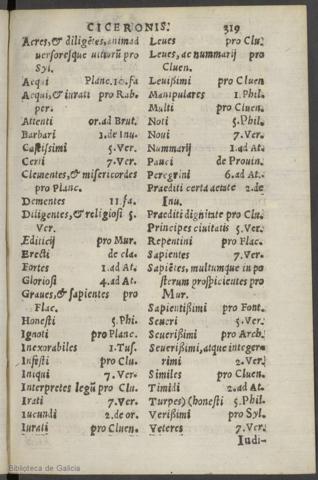 CICERONIS.
319
Acres, & diligẽtes, animad
uersoresque uitiorũ pro
Syl.
Aequi Planc. 10. fa
Aequi, & iurati pro Rab.
per.
Attenti or. ad Brut.
Barbari 1. de Inu.
Castissimi 5. Ver.
Certi 7. Ver.
Clementes, & misericordes
pro Planc.
Dementes 11. fa.
Diligentes, & religiosi 5.
Ver.
Edititij pro Mur.
Erecti de cla.
Fortes 1. ad At.
Gloriosi 4. ad At.
Graues, & sapientes pro
Flac.
Honesti 5. Phi.
Ignoti pro Planc.
Inexorabiles 1. Tus.
Infesti pro Clu.
Iniqui 7. Ver.
Interpretes legũ pro Clu.
Irati 7. Ver.
Iucundi 2. de or.
Iurati pro Cluen.
Leues pro Clu.
Leues, ac nummarij pro
Cluen.
Leuissimi pro Cluen
Manipulares 1. Phil.
Multi pro Cluen.
Noti 5. Phil.
Noui 7. Ver.
Nummarij 1. ad At.
Pauci de Prouin.
Peregrini 6. ad At.
Praediti certa aetate 2. de
Inu.
Praediti dignitate pro Clu.
Principes ciuitatis 5. Ver.
Repentini pro Flac.
Sapientes 7. Ver.
Sapiẽtes, multumque in po
sterum prospicientes pro
Mur.
Sapientissimi pro Font.
Seueri 5. Ver.
Seuerissimi pro Arch.
Seuerissimi, atque integer-
rimi 2. Ver.
Similes pro Cluen.
Timidi 2. ad At.
Turpes) (honesti 5. Phil.
Verissimi pro Syl.
Veteres 7. Ver.
Iudi-
Biblioteca de Galicia